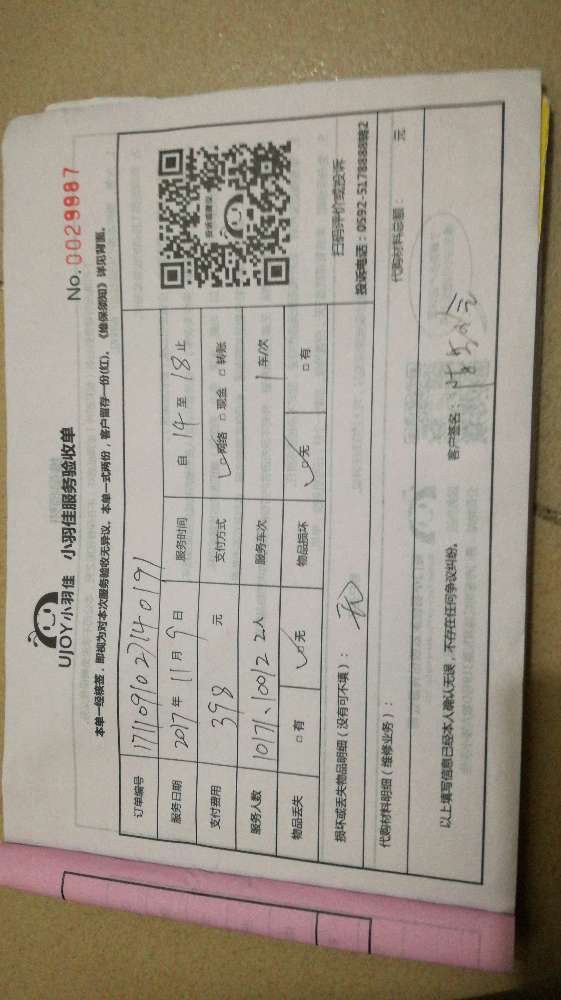 UJOY小羽佳 小羽佳服务验收单
No. 0029987
本单一经续签，即视为对本次服务验收无异议。本单一式两份，客户留存一份(红)。《维保须知》详见背面。
订单编号
服务日期 2017年11月9日 服务时间 自 14 至 18 止
支付费用 398 元 支付方式 ☑网络 □现金 □转账
服务人数 10171、10012 2人 服务车次 1 车/次
物品丢失 □有 ☑无 物品损坏 ☑无 □有
损坏或丢失物品明细（没有可不填）： 无
扫码评价或投诉
投诉电话：0592-5178888转2
代购材料明细（维修业务）： 代购材料总额： 元
以上填写信息已经本人确认无误，不存在任何争议纠纷。 客户签名：